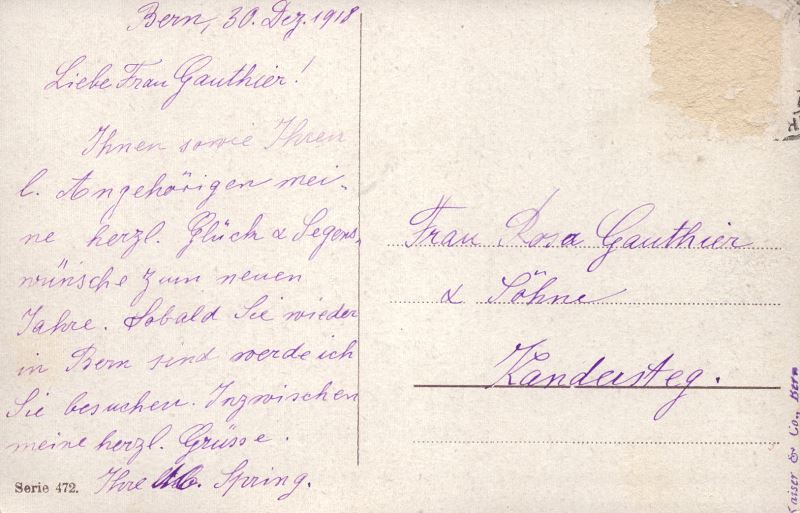 Bern, 30. Dez. 1918
Liebe Frau Gauthier!
Ihnen sowie Ihren
l. Angehörigen mei-
ne herzl. Glück & Segens-
wünsche zum neuen
Jahre. Sobald Sie wieder
in Bern sind werde ich
Sie besuchen. Inzwischen
meine herzl. Grüsse.
Ihre Spring.
Serie 472.
Frau Rosa Gauthier
& Söhne
Kandersteg.
Kaiser & Co., Bern